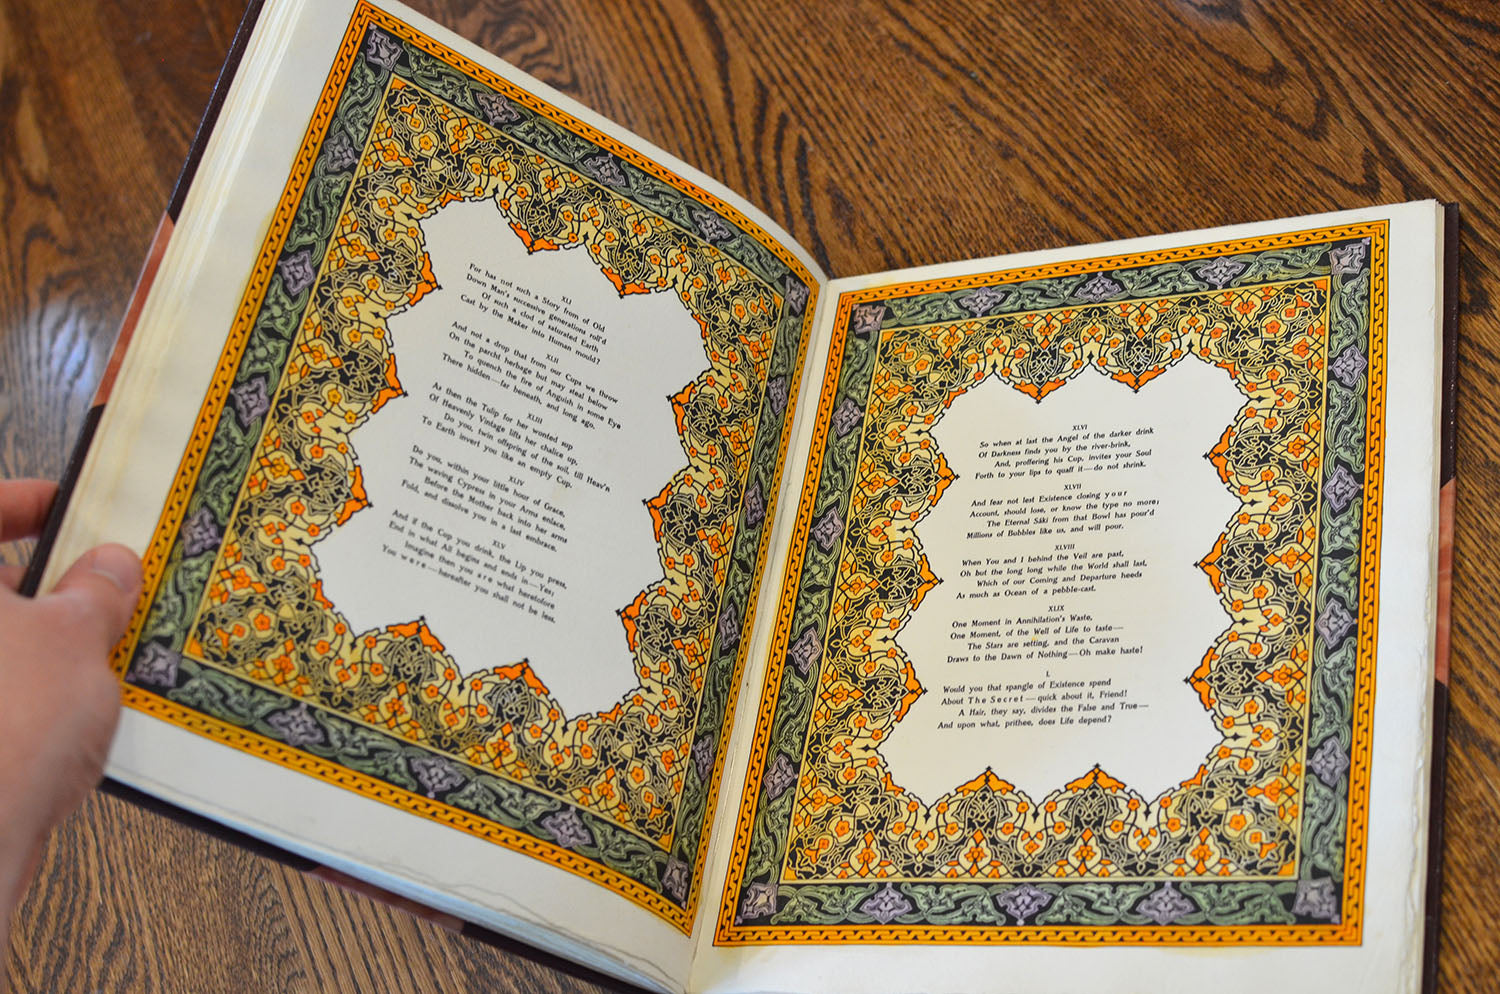 XLI
For has not such a Story from of Old
Down Man's successive generations roll'd
Of such a clod of saturated Earth
Cast by the Maker into Human mould?
XLII
And not a drop that from our Cups we throw
On the parcht herbage but may steal below
To quench the fire of Anguish in some Eye
There hidden—far beneath, and long ago.
XLIII
As then the Tulip for her wonted sup
Of Heavenly Vintage lifts her chalice up,
Do you, twin offspring of the soil, till Heav'n
To Earth invert you like an empty Cup.
XLIV
Do you, within your little hour of Grace,
The waving Cypress in your Arms enlace,
Before the Mother back into her arms
Fold, and dissolve you in a last embrace.
XLV
And if the Cup you drink, the Lip you press,
End in what All begins and ends in—Yes;
Imagine then you are what heretofore
You were—hereafter you shall not be less.
XLVI
So when at last the Angel of the darker drink
Of Darkness finds you by the river-brink,
And, proffering his Cup, invites your Soul
Forth to your lips to quaff it—do not shrink.
XLVII
And fear not lest Existence closing your
Account, should lose, or know the type no more;
The Eternal Sáki from that Bowl has pour'd
Millions of Bubbles like us, and will pour.
XLVIII
When You and I behind the Veil are past,
Oh but the long long while the World shall last,
Which of our Coming and Departure heeds
As much as Ocean of a pebble-cast.
XLIX
One Moment in Annihilation's Waste,
One Moment, of the Well of Life to taste—
The Stars are setting, and the Caravan
Draws to the Dawn of Nothing—Oh make haste!
L
Would you that spangle of Existence spend
About The Secret—quick about it, Friend!
A Hair, they say, divides the False and True—
And upon what, prithee, does Life depend?